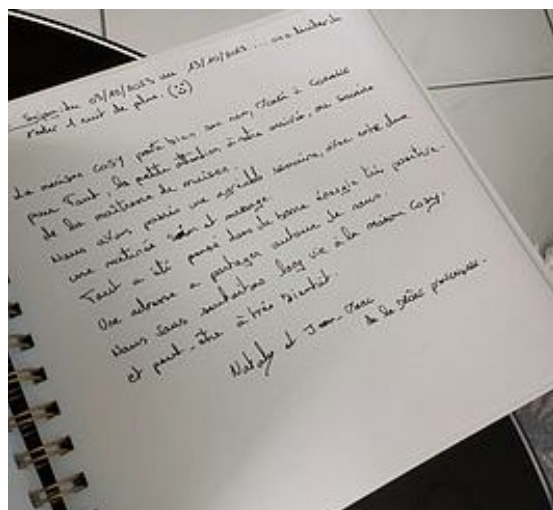 Séjour du 09/10/2023 au 13/10/2023 ... on a tenter de
rester 1 nuit de plus. (:)
La maison Cosy porte bien son nom, merci à Coralie
pour Tout, la petite attention à notre arrivée, au sourire
de la maîtresse de maison.
Nous avons passée une agréable semaine, avec une
une matinée soin et massage.
Tout a été pensé dans de bonne énergie très positive.
Une adresse a partager autour de nous.
Nous vous souhaitons longue vie à la maison Cosy.
et peut-être à très bientôt.
Nataly et Jean-Marc
de la Drôme provençale.